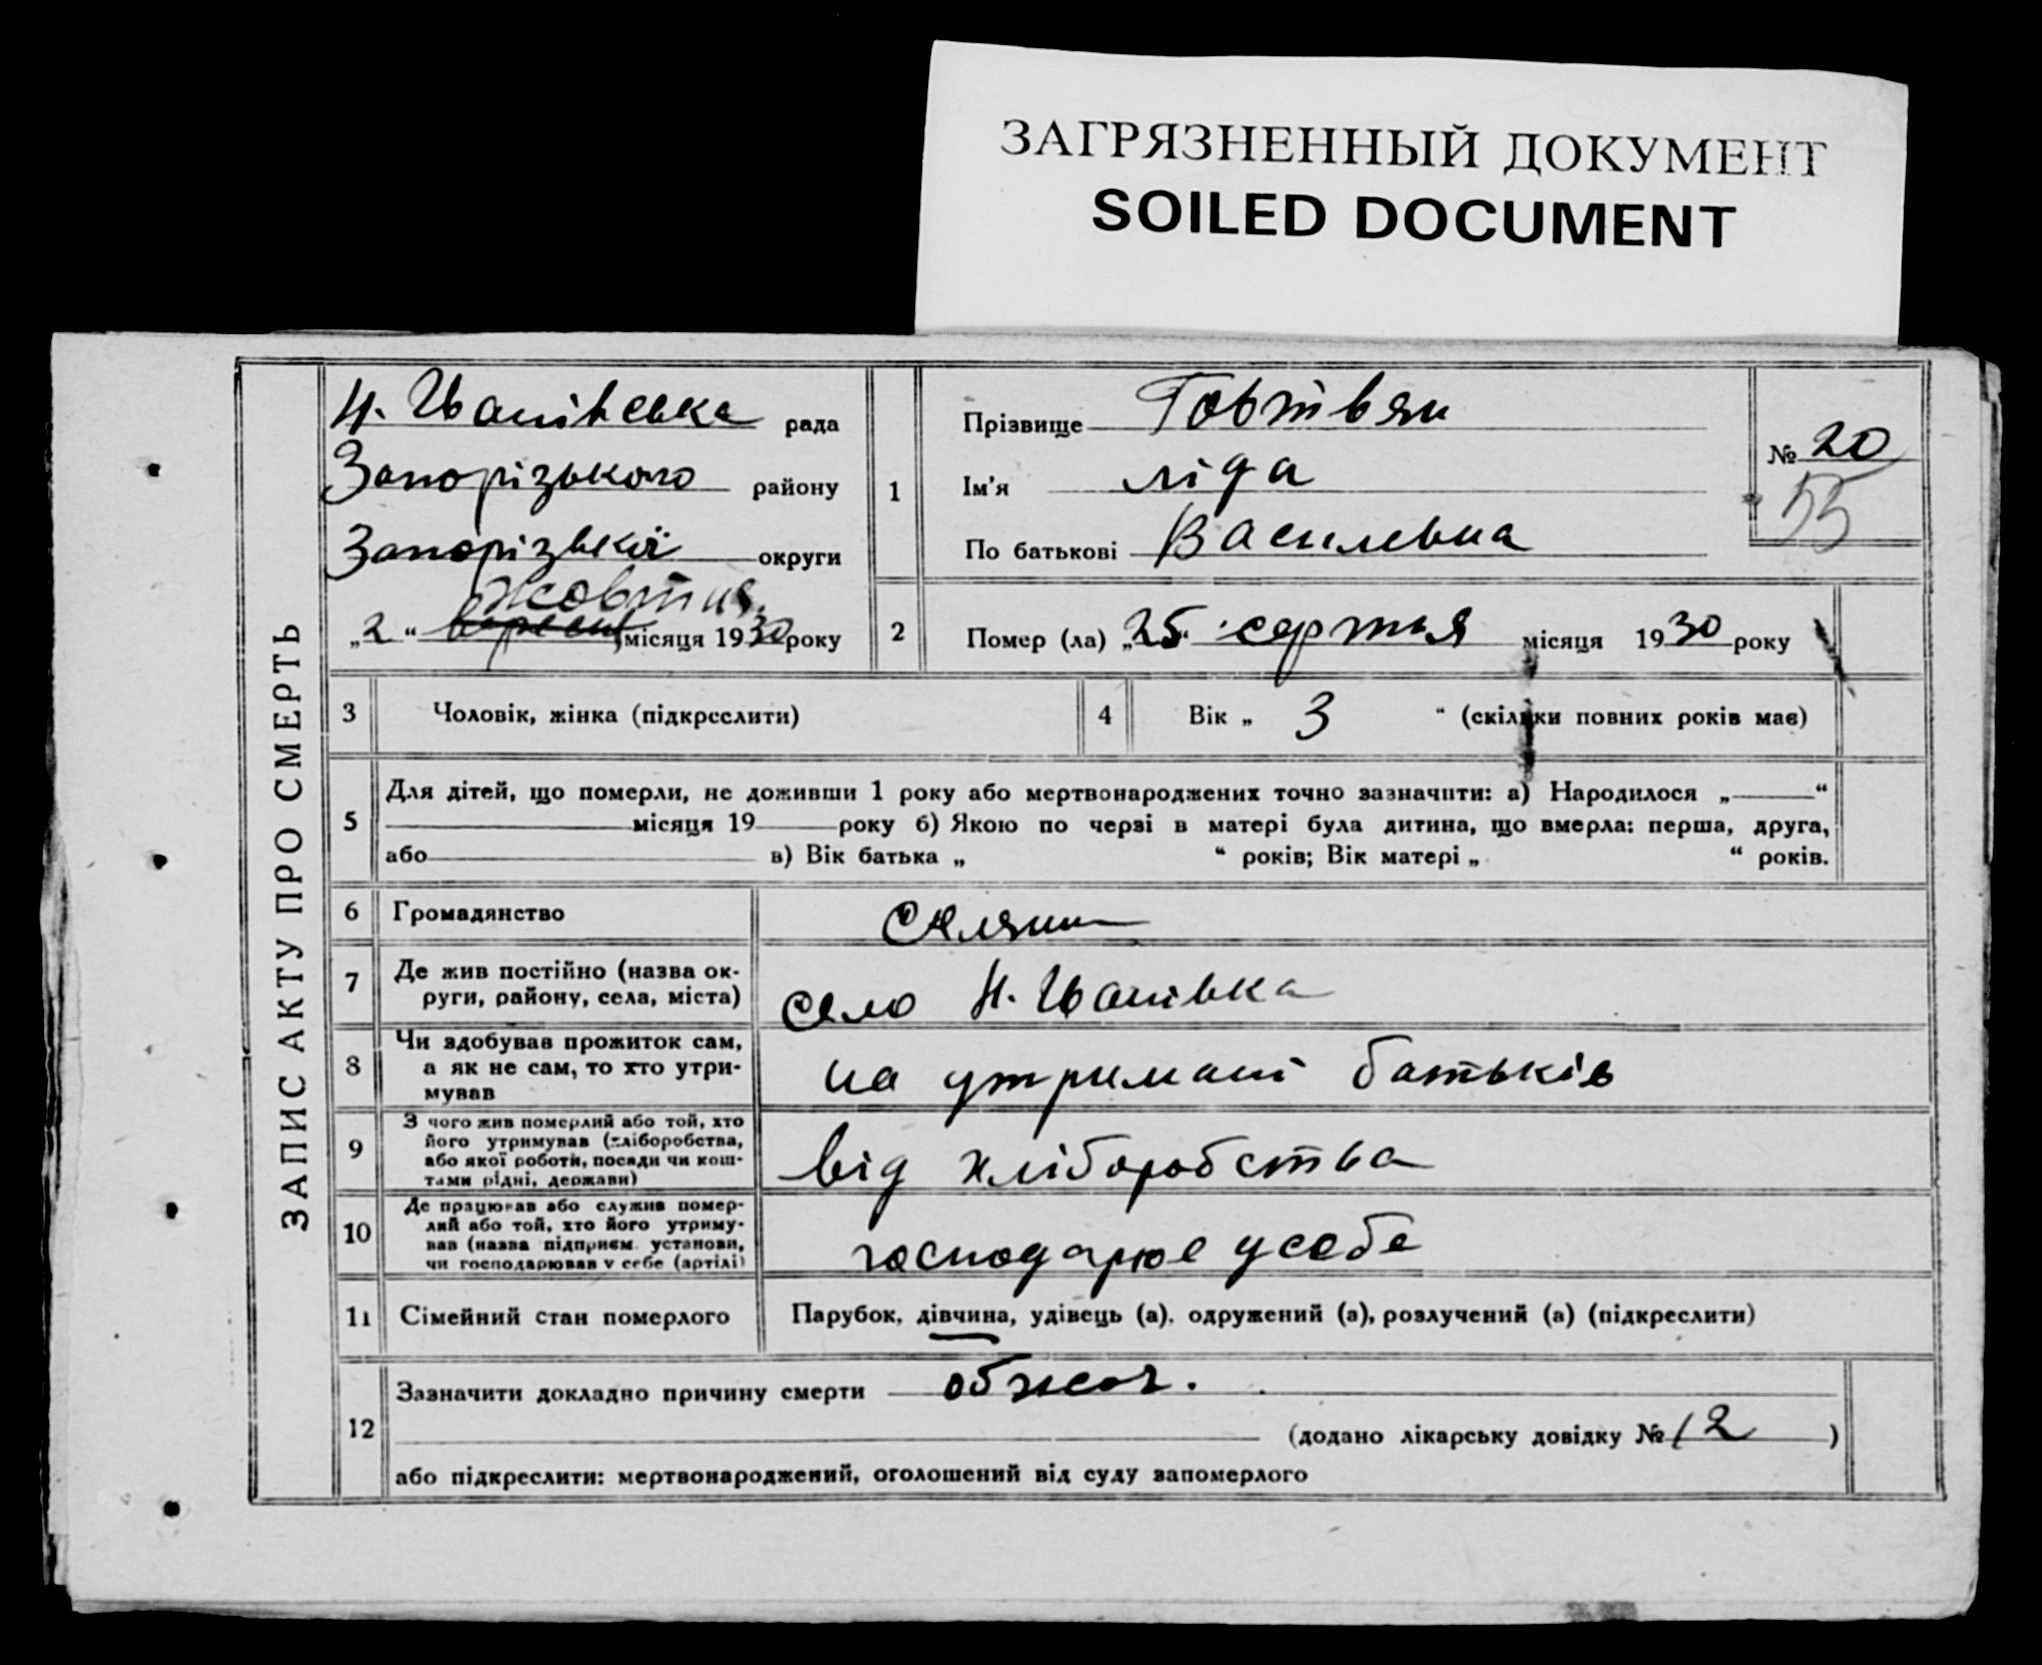 ЗАГРЯЗНЕННЫЙ ДОКУМЕНТ
SOILED DOCUMENT
ЗАПИС АКТУ ПРО СМЕРТЬ
Н. Іванівська рада
Запорізького району
Запорізької округи
жовтня
„2“ вересня місяця 1930 року
1
Прізвище Говтвян
Ім'я Ліда
По батькові Василевна
№ 20
55
2 Помер (ла) „25“ серпня місяця 1930 року
3 Чоловік, жінка (підкреслити)
4 Вік „ 3 “ (скільки повних років має)
5 Для дітей, що померли, не доживши 1 року або мертвонароджених точно зазначити: а) Народилося „ “
місяця 19 року б) Якою по черзі в матері була дитина, що вмерла: перша, друга,
або в) Вік батька „ “ років; Вік матері „ “ років.
6 Громадянство селяни
7 Де жив постійно (назва ок-
руги, району, села, міста)
село Н. Іванівка
8 Чи здобував прожиток сам,
а як не сам, то хто утри-
мував
на утримані батьків
9 З чого жив померлий або той, хто
його утримував (хліборобства,
або якої роботи, посади чи кош-
тами рідні, держави)
від хліборобства
10 Де працював або служив помер-
лий або той, хто його утриму-
вав (назва підприєм. установи,
чи господарював у себе (артілі)
господарює у себе
11 Сімейний стан померлого Парубок, дівчина, удівець (а), одружений (а), розлучений (а) (підкреслити)
12 Зазначити докладно причину смерти обжог.
(додано лікарську довідку № 12 )
або підкреслити: мертвонароджений, оголошений від суду запомерлого